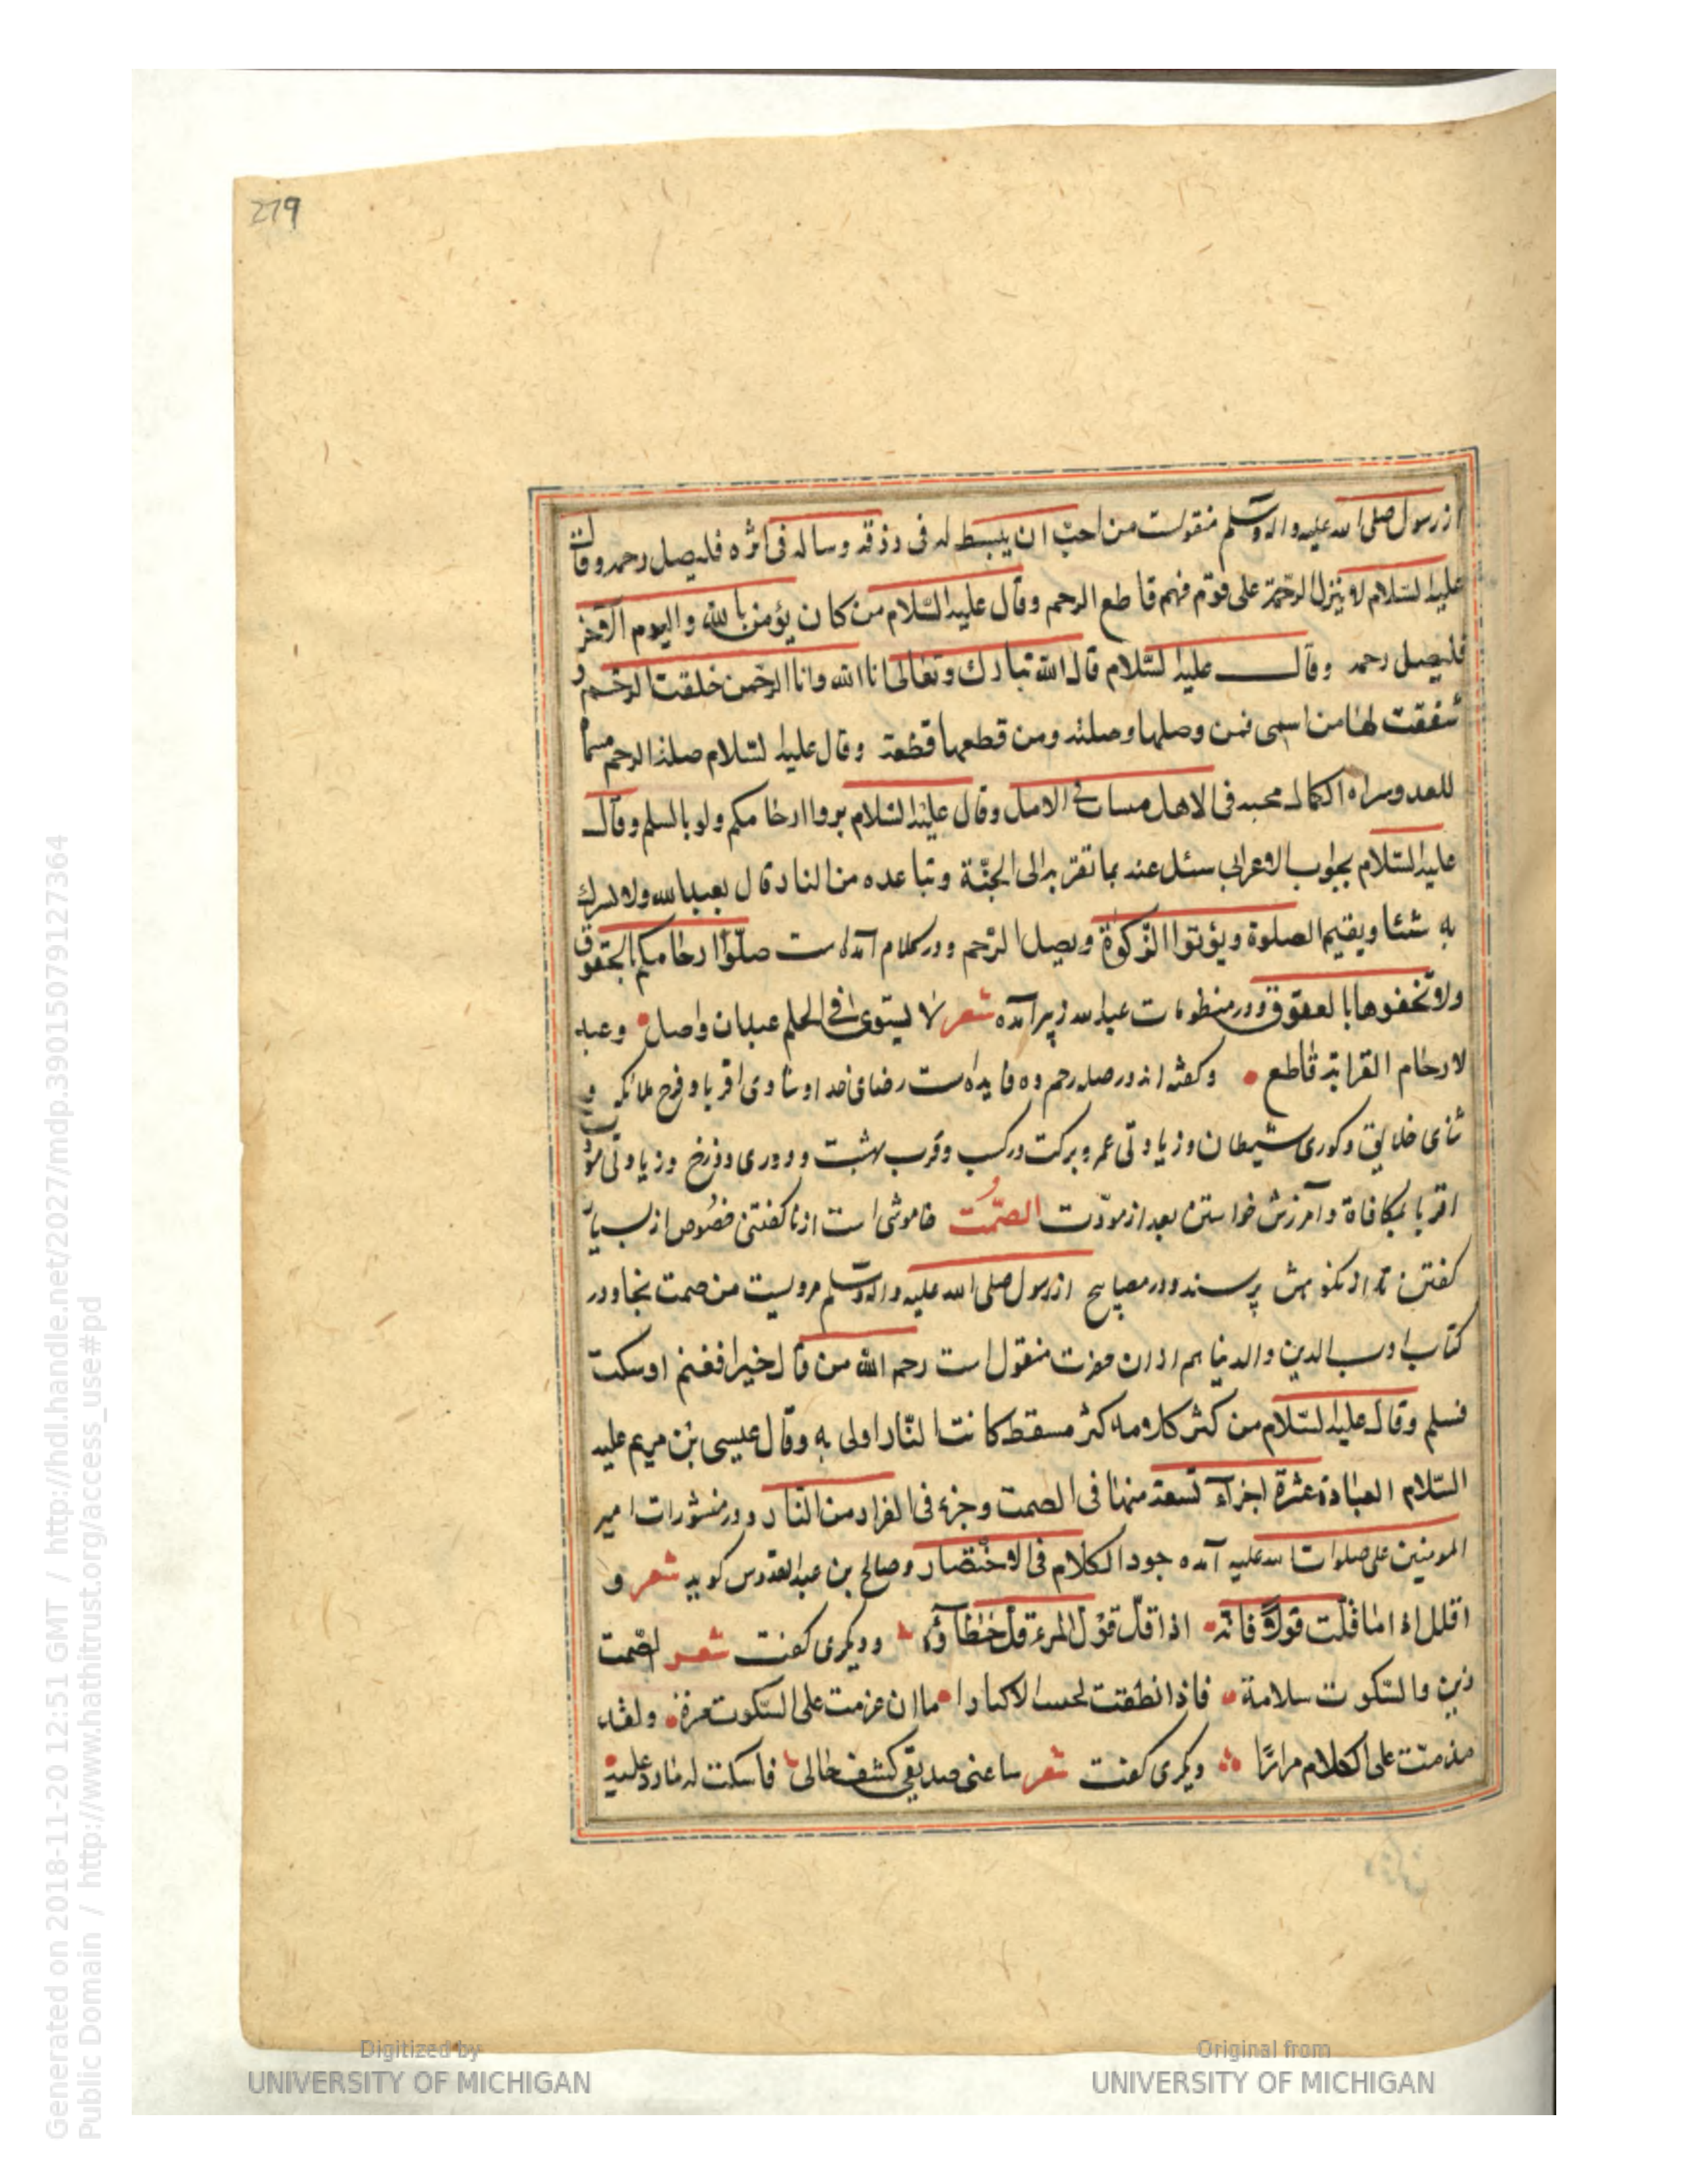 279
از رسول صلی الله علیه و اله وسلم منقولست من احبّ ان یبسط له فی رزقه وساله فی اثره فلیصل رحمه وقال
علیه السّلام لا ینزل الرّحمة علی قوم فیهم قاطع الرحم وقال علیه السّلام من کان یؤمن بالله والیوم الآخر
فلیصل رحمه وقال علیه السّلام قال الله تبارك وتعالی انا الله وانا الرّحمن خلقت الرّحم و
شققت لها من اسمی فمن وصلها وصلته ومن قطعها قطعته وقال علیه السّلام صلة الرحم
محبه فی الاهل الامل وقال علیه السّلام بروا ارحامکم ولو بالسلم وقال
علیه السّلام بجواب الاعرابی سئل عنه بما تقربه الی الجنّة وتباعده من النار قال یعبد الله ولا یشرك
به شیئا ویقیم الصلوة ویؤتوا الزّکوة ویصل الرّحم ودر کلام آمده است صلّوا ارحامکم بالحقوق
ولا تخفوها بالعقوق ودر منظومات عبدالله زبیر آمده شعر لا یستوی فی الحلم عبدان واصل وعبد
لارحام القرابة قاطع وگفته اند در صله رحم ده فایده است رضای خدا وشادی اقربا وفرح ملائکه و
ثنای خلایق وکوری شیطان وزیادتی عمر وبرکت در کسب وقرب بهشت ودوری دوزخ وزیادتی
اقربا بمکافاة وآمرزش خواستن بعد از مودّت الصّمت خاموشی است از ناگفتنی خصوص از بسیار
گفتن که از نکوهش پرسند ودر مصابیح از رسول صلی الله علیه واله وسلم مرویست من صمت نجا ودر
کتاب ادب الدین والدنیا هم از ان حضرت منقول است رحم الله من قال خیرا فغنم او سکت
فسلم وقال علیه السّلام من کثر کلامه کثر مسقط کانت النّار اولی به وقال عیسی بن مریم علیه
السّلام العبادة عشرة اجزاء تسعة منها فی الصمت وجزء فی الفرار من النّاس ودر منثورات امیر
المومنین علی صلوات الله علیه آمده جود الکلام فی الاختصار وصالح بن عبد القدوس گوید شعر و
اقلل اذا ما قلت قولًا فانّه اذا قلّ قول المرء قلّ خطاؤه ودیگری گفت شعر الصّمت
زین والسّکوت سلامة فاذا نطقت ما ان عزمت علی السّکوت مرة ولقد
ندمت علی الکلام مرارًا دیگری گفت شعر صدیقی کشف حالی فاسکت علیه
Generated on 2018-11-20 12:51 GMT / http://hdl.handle.net/2027/mdp.39015079127364
Public Domain / http://www.hathitrust.org/access_use#pd
Digitized by
UNIVERSITY OF MICHIGAN
Original from
UNIVERSITY OF MICHIGAN